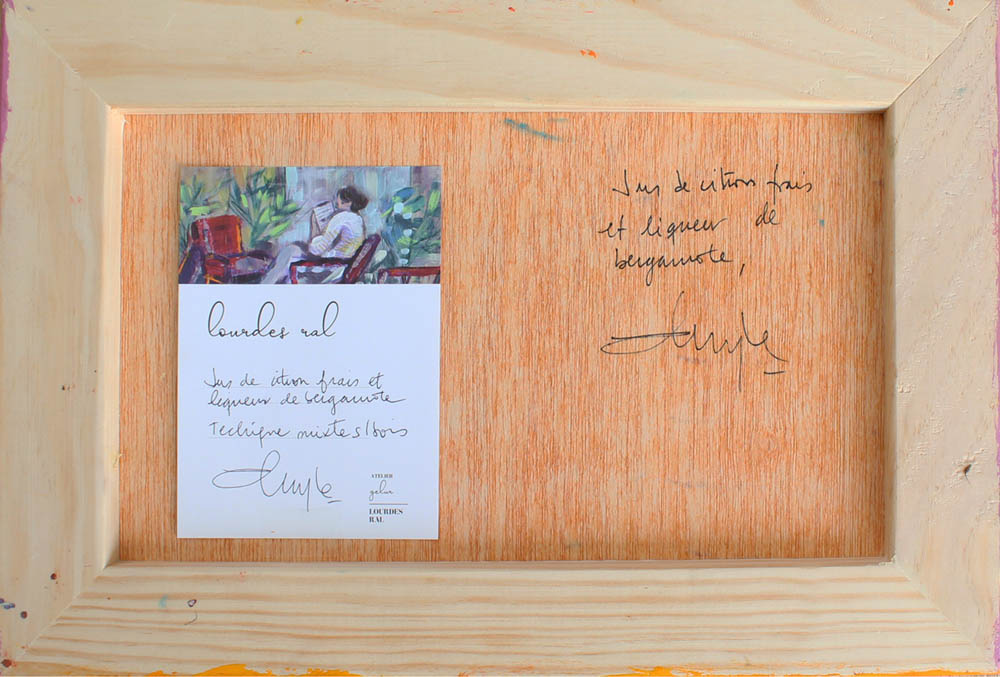 lourdes ral
Jus de citron frais et
liqueur de bergamote
Technique mixte s/bois
ATELIER
LOURDES
RAL
Jus de citron frais
et liqueur de
bergamote,